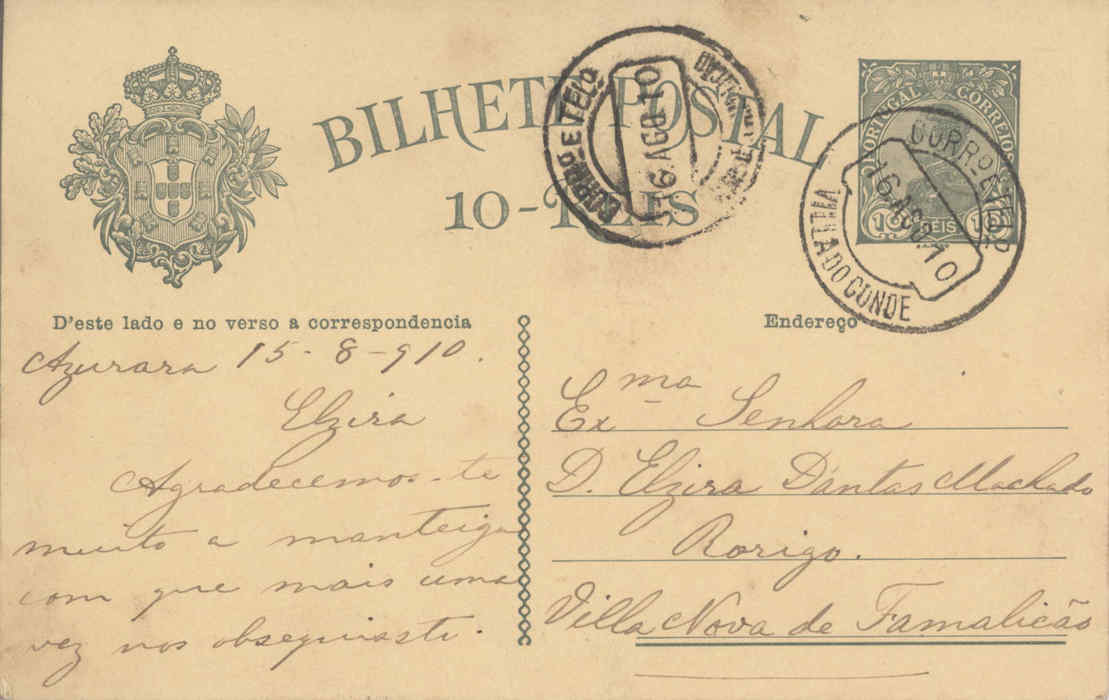 BILHETE POSTAL
10-REIS
CORRO E TELO
16 AGO 10
PORTUGAL CORREIOS
10 REIS 10
CORRO E TELO
16 AGO 10
VILLA DO CONDE
D'este lado e no verso a correspondencia
Azurara 15-8-910.
Elzira
Agradecemos-te
muito a manteiga
com que mais uma
vez nos obsequiaste.
Endereço
Exma Senhora
D. Elzira Dantas Machado
Rorigo.
Villa Nova de Famalicão